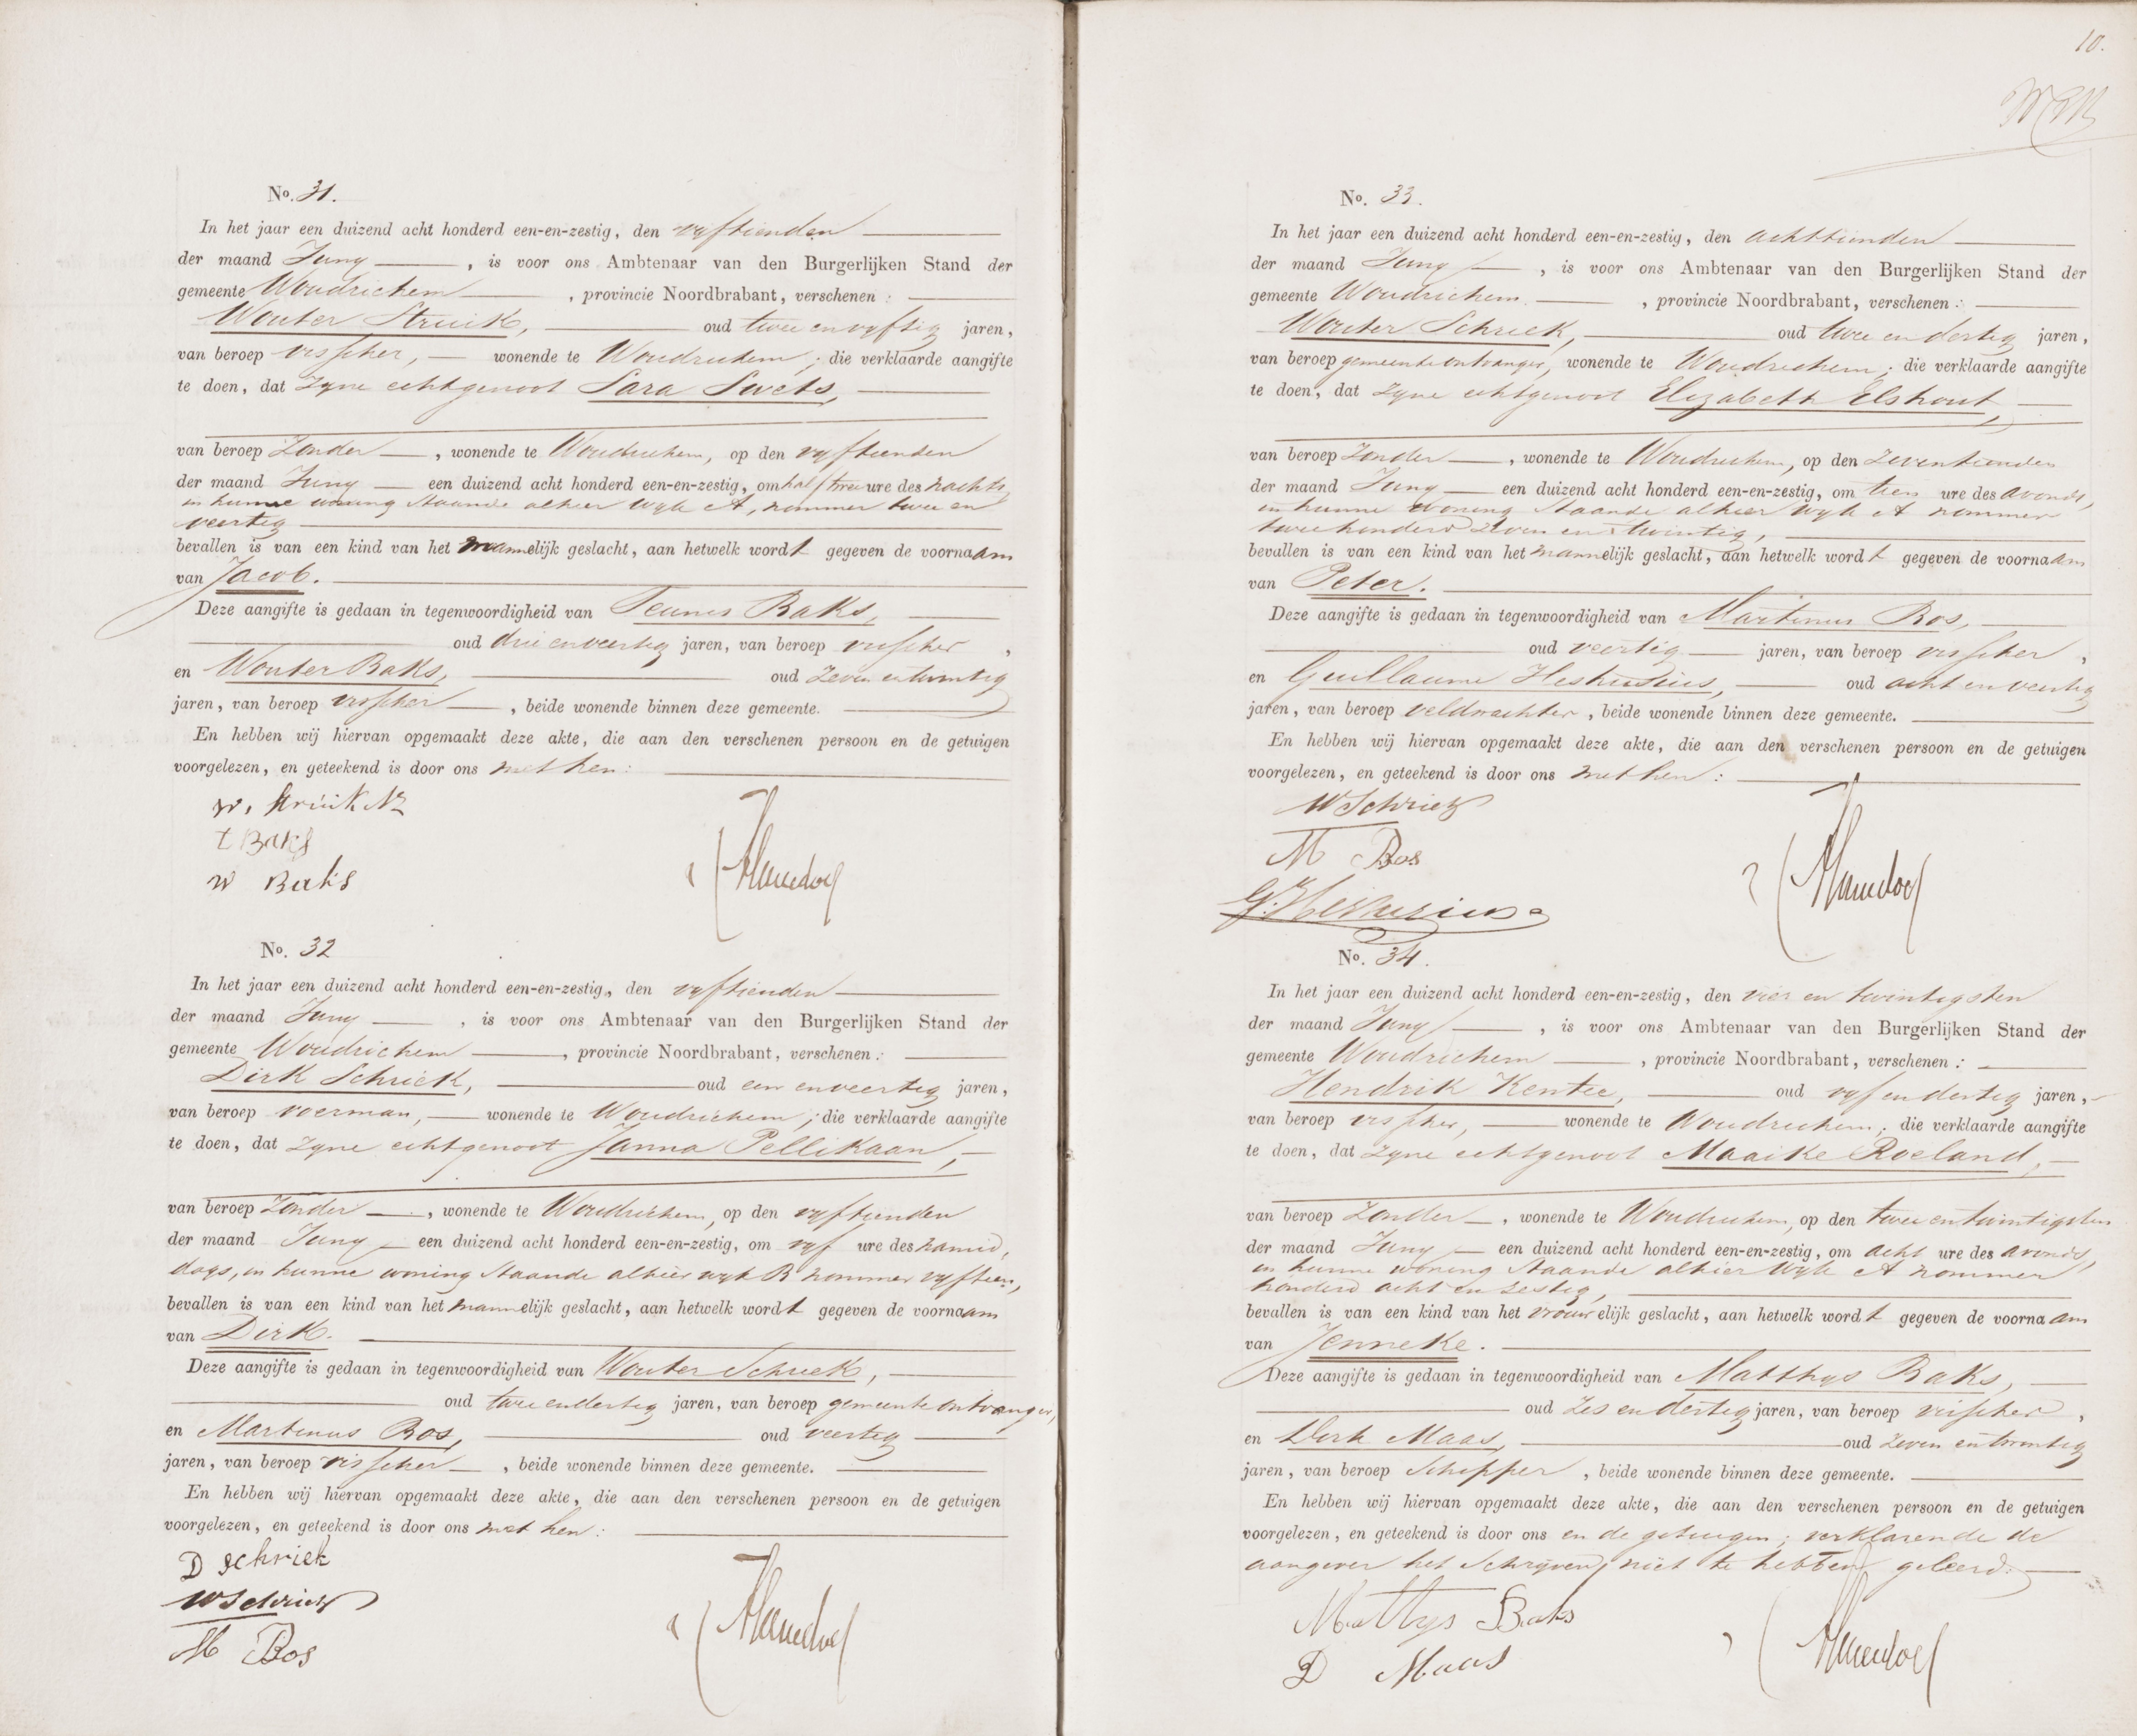 No. 31.
In het jaar een duizend acht honderd een-en-zestig, den vyftienden
der maand Juny, is voor ons Ambtenaar van den Burgerlijken Stand der
gemeente Woudrichem, provincie Noordbrabant, verschenen:
Wouter Struik, oud twee en vyftig jaren,
van beroep visscher, wonende te Woudrichem; die verklaarde aangifte
te doen, dat zyne echtgenoot Sara Swets,
van beroep Zonder, wonende te Woudrichem, op den vyftienden
der maand Juny een duizend acht honderd een-en-zestig, om half twee ure des nachts
in hunne woning staande alhier wyk A, nommer twee en
veertig
bevallen is van een kind van het mannelijk geslacht, aan hetwelk wordt gegeven de voornaam
van Jacob.
Deze aangifte is gedaan in tegenwoordigheid van Teunis Baks,
oud drie en veertig jaren, van beroep visscher,
en Wouter Baks, oud zeven en twintig
jaren, van beroep visscher, beide wonende binnen deze gemeente.
En hebben wij hiervan opgemaakt deze akte, die aan den verschenen persoon en de getuigen
voorgelezen, en geteekend is door ons met hen:
W. Struik NZ
t Baks
W Baks
No. 32
In het jaar een duizend acht honderd een-en-zestig, den vyftienden
der maand Juny, is voor ons Ambtenaar van den Burgerlijken Stand der
gemeente Woudrichem, provincie Noordbrabant, verschenen:
Dirk Schriek, oud een en veertig jaren,
van beroep voerman, wonende te Woudrichem; die verklaarde aangifte
te doen, dat zyne echtgenoot Janna Pellikaan,
van beroep Zonder, wonende te Woudrichem, op den vyftienden
der maand Juny een duizend acht honderd een-en-zestig, om vyf ure des namid,
dags, in hunne woning staande alhier wyk B nommer vyftien,
bevallen is van een kind van het mannelijk geslacht, aan hetwelk wordt gegeven de voornaam
van Dirk.
Deze aangifte is gedaan in tegenwoordigheid van Wouter Schriek,
oud twee en dertig jaren, van beroep gemeente ontvanger,
en Martinus Bos, oud veertig
jaren, van beroep visscher, beide wonende binnen deze gemeente.
En hebben wij hiervan opgemaakt deze akte, die aan den verschenen persoon en de getuigen
voorgelezen, en geteekend is door ons met hen:
D schriek
W Schriek
M Bos
10.
No. 33.
In het jaar een duizend acht honderd een-en-zestig, den achttienden
der maand Juny, is voor ons Ambtenaar van den Burgerlijken Stand der
gemeente Woudrichem, provincie Noordbrabant, verschenen:
Wouter Schriek, oud twee en dertig jaren,
van beroep gemeente ontvanger, wonende te Woudrichem; die verklaarde aangifte
te doen, dat zyne echtgenoot Elizabeth Elshout,
van beroep Zonder, wonende te Woudrichem, op den zeventienden
der maand Juny een duizend acht honderd een-en-zestig, om tien ure des avonds,
in hunne woning staande alhier wyk A nommer
twee honderd zeven en twintig,
bevallen is van een kind van het mannelijk geslacht, aan hetwelk wordt gegeven de voornaam
van Peter.
Deze aangifte is gedaan in tegenwoordigheid van Martinus Bos,
oud veertig jaren, van beroep visscher,
en Guillaume Heshusius, oud acht en veertig
jaren, van beroep veldwachter, beide wonende binnen deze gemeente.
En hebben wij hiervan opgemaakt deze akte, die aan den verschenen persoon en de getuigen
voorgelezen, en geteekend is door ons met hen:
W Schriek
M Bos
G. Heshusius
No. 34.
In het jaar een duizend acht honderd een-en-zestig, den vier en twintigsten
der maand Juny, is voor ons Ambtenaar van den Burgerlijken Stand der
gemeente Woudrichem, provincie Noordbrabant, verschenen:
Hendrik Kentie, oud vyf en dertig jaren,
van beroep visscher, wonende te Woudrichem; die verklaarde aangifte
te doen, dat zyne echtgenoot Maaike Roeland,
van beroep Zonder, wonende te Woudrichem, op den twee en twintigsten
der maand Juny een duizend acht honderd een-en-zestig, om acht ure des avonds,
in hunne woning staande alhier wyk A nommer
honderd acht en zestig,
bevallen is van een kind van het vrouwelijk geslacht, aan hetwelk wordt gegeven de voornaam
van Jenneke.
Deze aangifte is gedaan in tegenwoordigheid van Matthys Baks,
oud zes en dertig jaren, van beroep visscher,
en Dirk Maas, oud zeven en twintig
jaren, van beroep Schipper, beide wonende binnen deze gemeente.
En hebben wij hiervan opgemaakt deze akte, die aan den verschenen persoon en de getuigen
voorgelezen, en geteekend is door ons en de getuigen; verklarende de
aangever het schryven niet te hebben geleerd.
Mattys Baks
D Maas